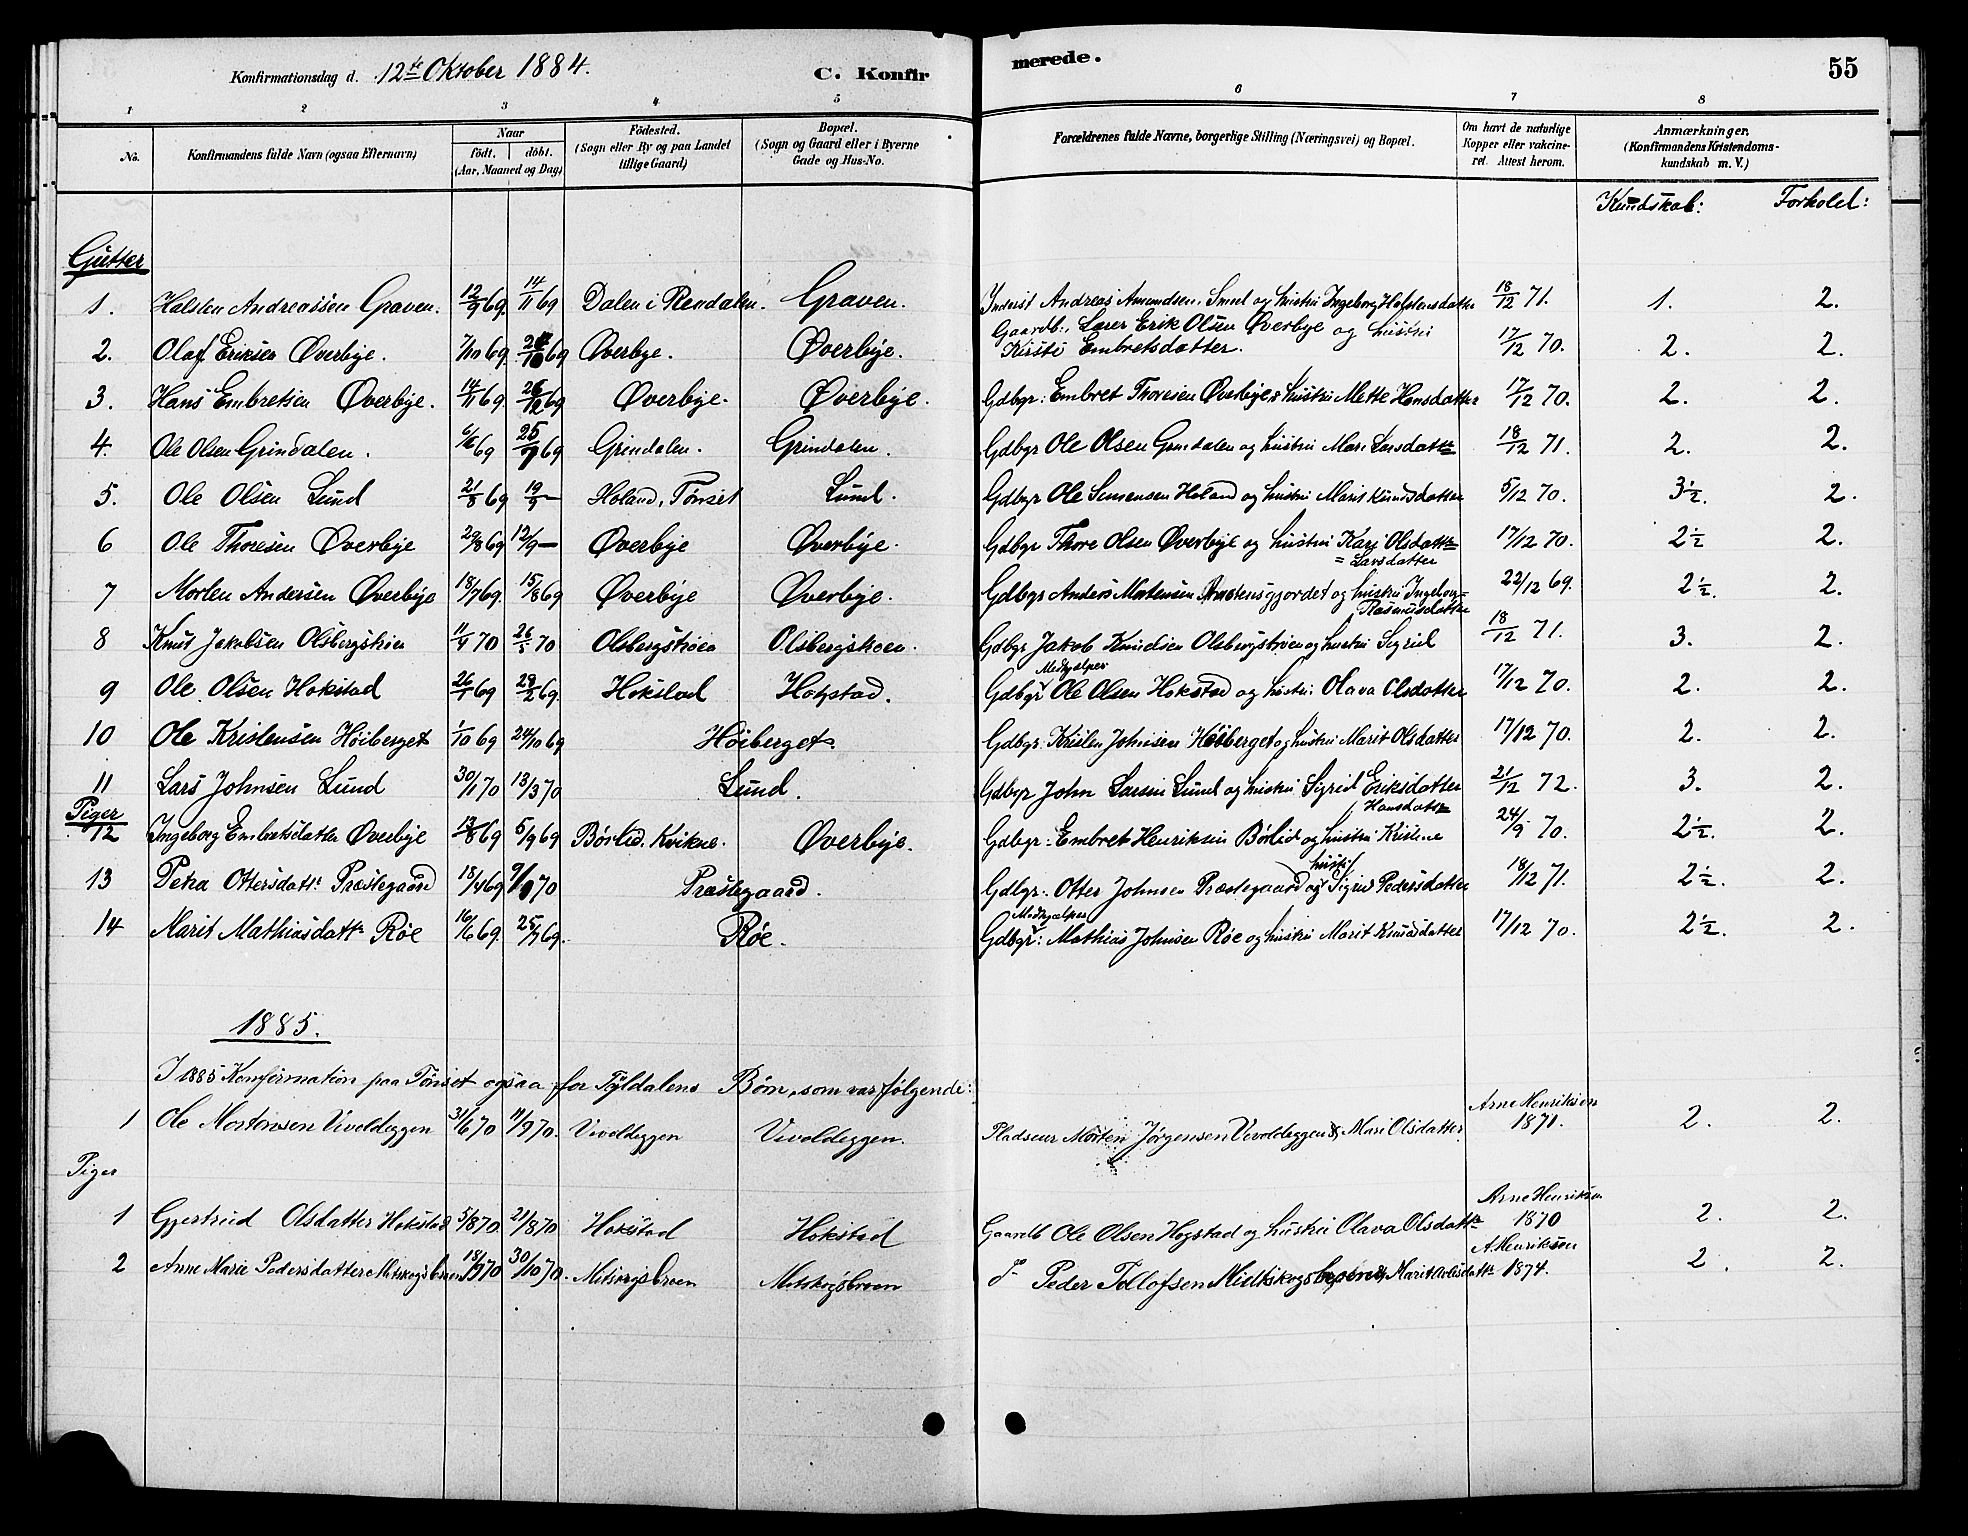 Konfirmationsdag d. 12te Oktober 1884. C. Konfir merede. 55
1 2 3 4 5 6 7 8
No. Konfirmandens fulde Navn (ogsaa Efternavn) Naar født. døbt. (Aar, Maaned og Dag) Fødested. (Sogn eller By og paa Landet tillige Gaard) Bopæl. (Sogn og Gaard eller i Byerne Gade og Hus-No.) Forældrenes fulde Navne, borgerlige Stilling (Næringsvei) og Bopæl. Om havt de naturlige Kopper eller vakcineret. Attest herom. Anmærkninger. (Konfirmandens Kristendomskundskab m. V.)
Kundskab: Forhold:
Gutter
1. Halsten Andreassen Graven. 12/9 69 14/11 69 Dalen i Rendalen. Graven. Inderst Andreas Amundsen, Smed og hustru Ingeborg Halstensdatter 18/12 71. 1. 2.
2. Olaf Eriksen Øverbye. 7/10 69 69 Øverbye. Øverbye. Gaardb:, Lærer Erik Olsen Øverbye og hustru Kirsti Embretsdatter. 17/12 70. 2. 2.
3. Hans Embretsen Øverbye. 14/11 69 26/12 69 Øverbye. Øverbye. Gdbgr: Embret Thoresen Øverbye & hustru Mette Hansdatter 17/12 70. 2. 2.
4. Ole Olsen Grindalen. 6/6 69 25/7 69 Grindalen. Grindalen. Gdbgr Ole Olsen Grindalen og hustru Mari Larsdattr 18/12 71. 2. 2.
5. Ole Olsen Lund 21/8 69 19/9 — Holand, Tønset Lund. Gdbgr Ole Simensen Holand og hustru Marit Knudsdatter 5/12 70. 3½. 2.
6 Ole Thoresen Øverbye 29/8 69 12/9 — Øverbye Øverbye. Gdbgr Thore Olsen Øverbye og hustru Kari Olsdattr 17/12 70. 2½ 2.
= Larsdatter
7 Morten Andersen Øverbye 18/7 69. 15/8 69 Øverbye Øverbye. Gdbgr Anders Mortensen og hustru Ingeborg Rasmusdatter 22/12 69. 2½. 2.
8 Knut Jakobsen Olsbergstrøen 11/4 70 26/5 70 Olsbergstrøen Olsbergstrøen. Gdbgr Jakob Knudsen Olsbergstrøen og hustru Sigrid 18/12 71. 3. 2.
9 Ole Olsen Hokstad 26/1 69 69. Hokstad Hokstad. Gdbgr Medhjælper Ole Olsen Hokstad og hustru Olava Olsdatter 17/12 70. 2. 2.
10 Ole Kristensen Høiberget 1/10 69 24/10 69 Høiberget. Gdbgr: Kristen Johnsen Høiberget og hustru Marit Olsdatter 17/12 70. 2. 2.
11 Lars Johnsen Lund 30/1 70 13/3 70 Lund. Gdbgr John Larsen Lund og hustru Sigrid Eriksdatter 21/12 72. 3. 2.
Piger
12 Ingeborg Embretsdatter Øverbye 13/8 69 5/9 69 Børlid, Kvikne. Øverbye. Gdbgr: Embret Henriksen Børlid og hustru Kristine Hansdattr 24/9 70. 2½. 2.
13 Petra Ottersdattr Præstegaard 18/4 69 70 Præstegaard. Gdbgr: Otter Johnsen Præstegaard og hustru Sigrid Pedersdatter 18/12 71. 2½. 2.
14 Marit Mathiasdattr Røe 16/6 69. 25/7 69. Røe. Gdbgr: Medhjælper Mathias Johnsen Røe og hustru Marit Knudsdatter 17/12 70. 2½. 2.
1885.
I 1885 Konfirmation paa Tønset ogsaa for Tyldalens Børn, som var følgende:
1 Ole Mortensen Vivoldeggen 31/6 70 11/9 70. Vivoldeggen Vivoldeggen. Pladseier Morten Jørgensen Vivoldeggen & Mari Olsdatter. Arne Henriksen 1871. 2. 2.
Piger
1 Gjertrud Olsdatter Hokstad 5/8 70. 21/8 70 Hokstad Hokstad Gaardb Ole Olsen Hogstad og hustru Olava Olsdattr Arne Henriksen 1870 2. 2.
2 Anne Marie Pedersdatter Mitskogsbroen 18/9 70 30/10 70. Mitskogsbroen Mitskogsbroen Peder Tollofsen Marit Olsdattr A. Henriksen 1874. 2. 2.